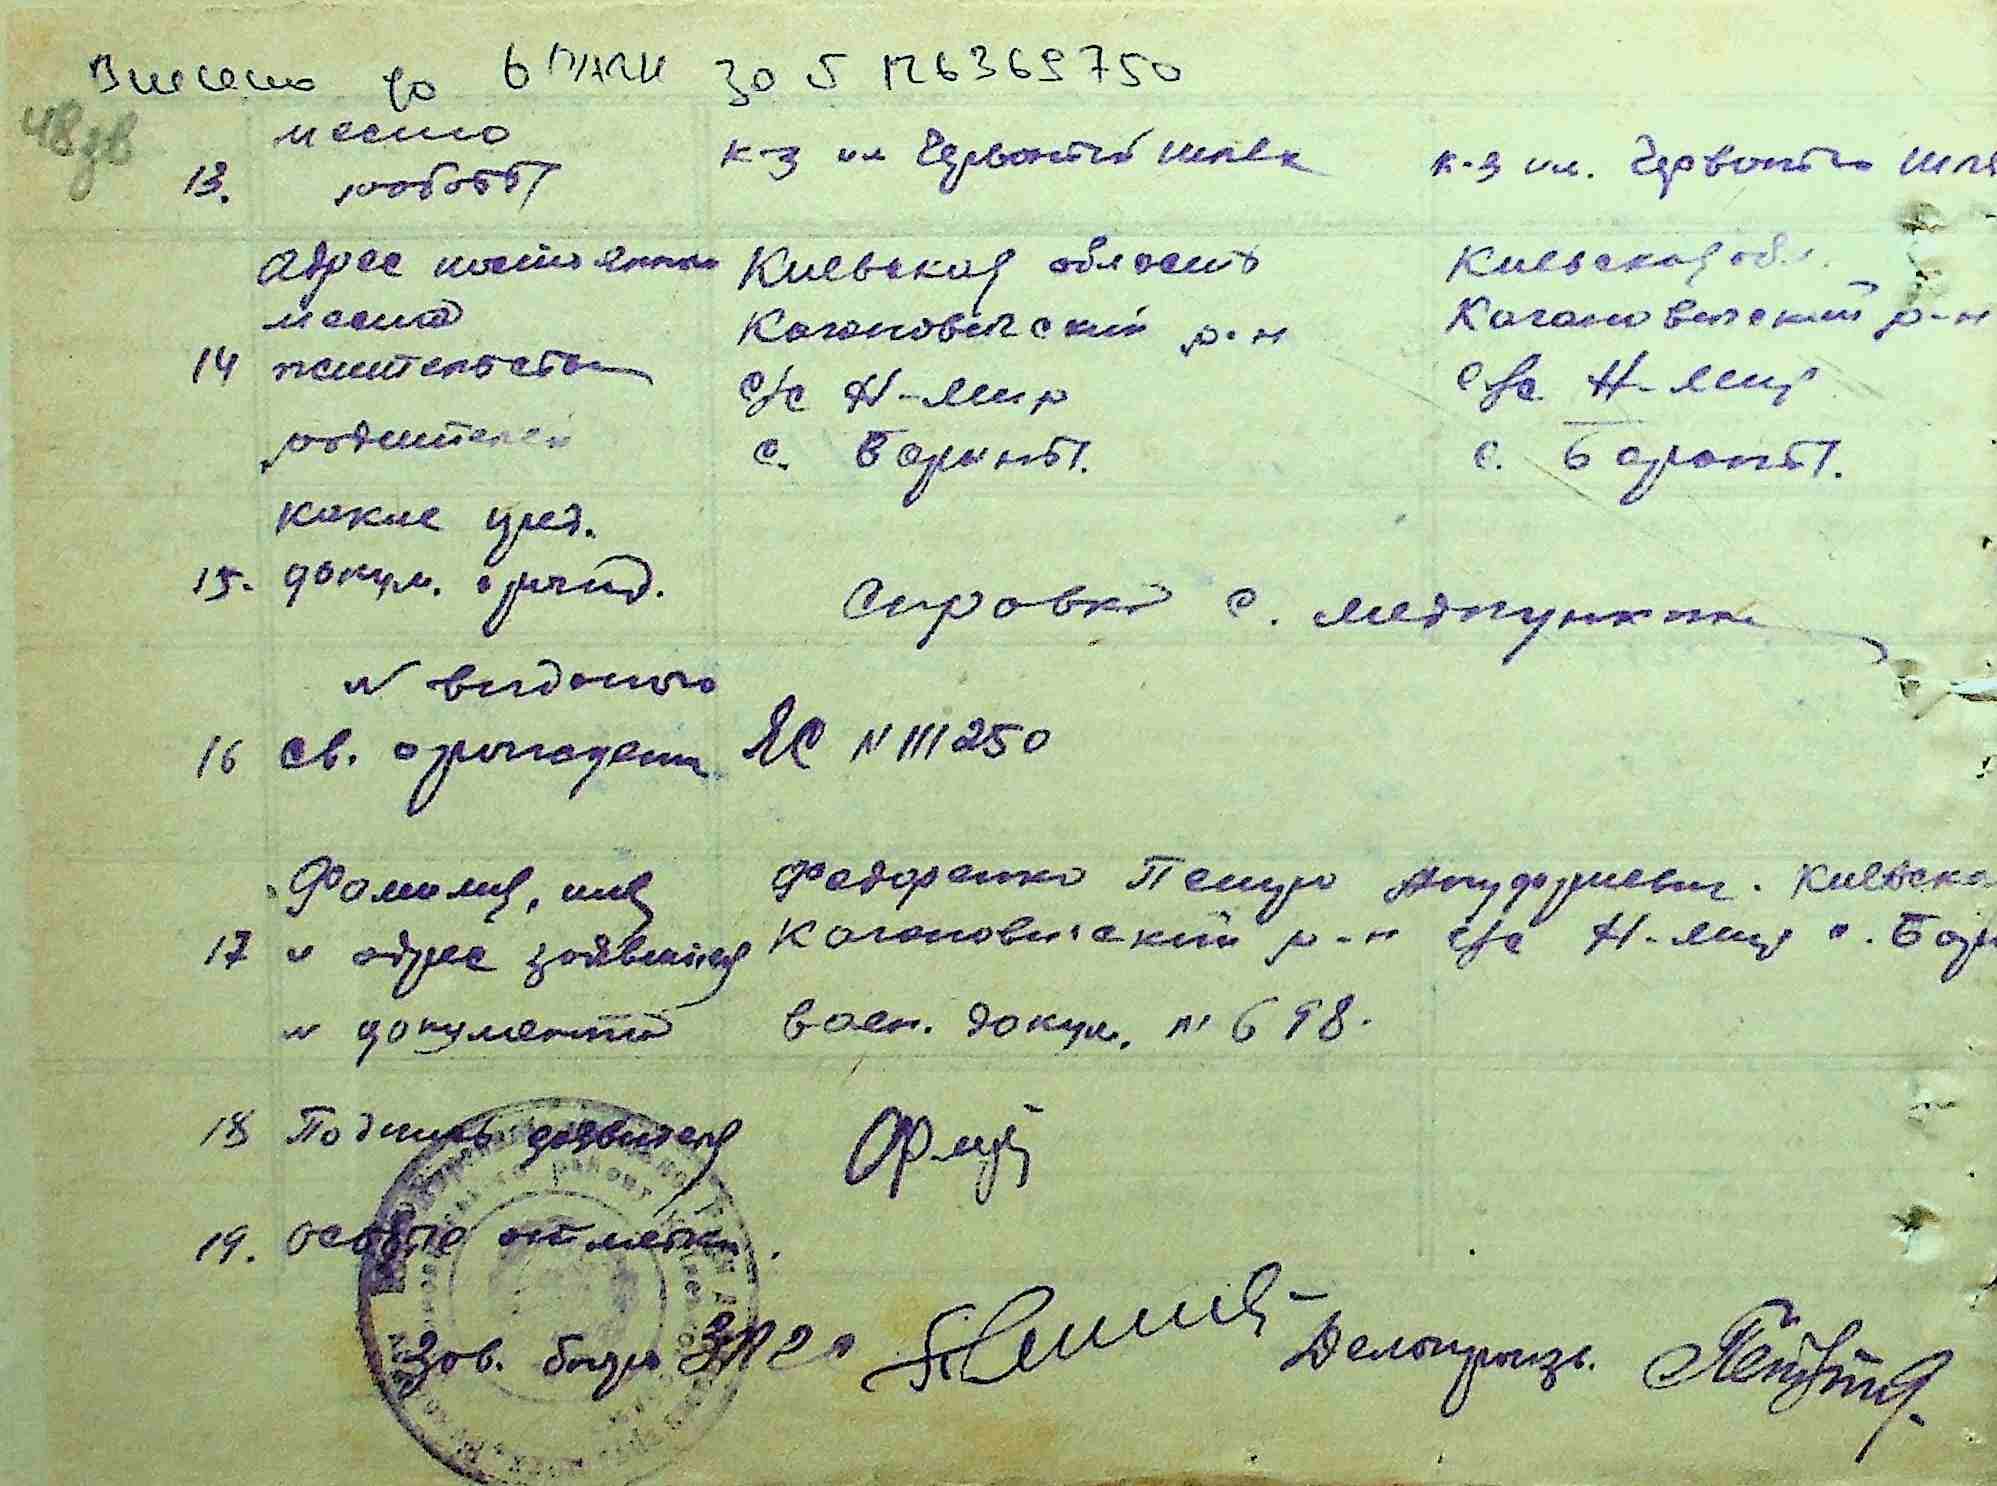 Внесено до
48зв
13. место работы
к-з им Червоний шлях
к-з им. Червоний шля
14 Адрес постоянного места жительства родителей
Киевская область
Кагановичский р-н
с/с Н-Мир
с. Бориты.
Киевская обл.
Кагановичский р-н
с/с Н-Мир
15. какие пред. докум. о рожд.
Справка с. медпункта
16 № выданого св. о рождении
ЯС № 111250
17 Фамилия, имя и адрес заявителя и документы
Федоренко Петро Киевска
Кагановичский р-н с/с Н-Мир с.
воен. докум. № 698.
18 Подпись заявителя
19. особые отметки.
Зав. бюро ЗАГС
Делопроизв.